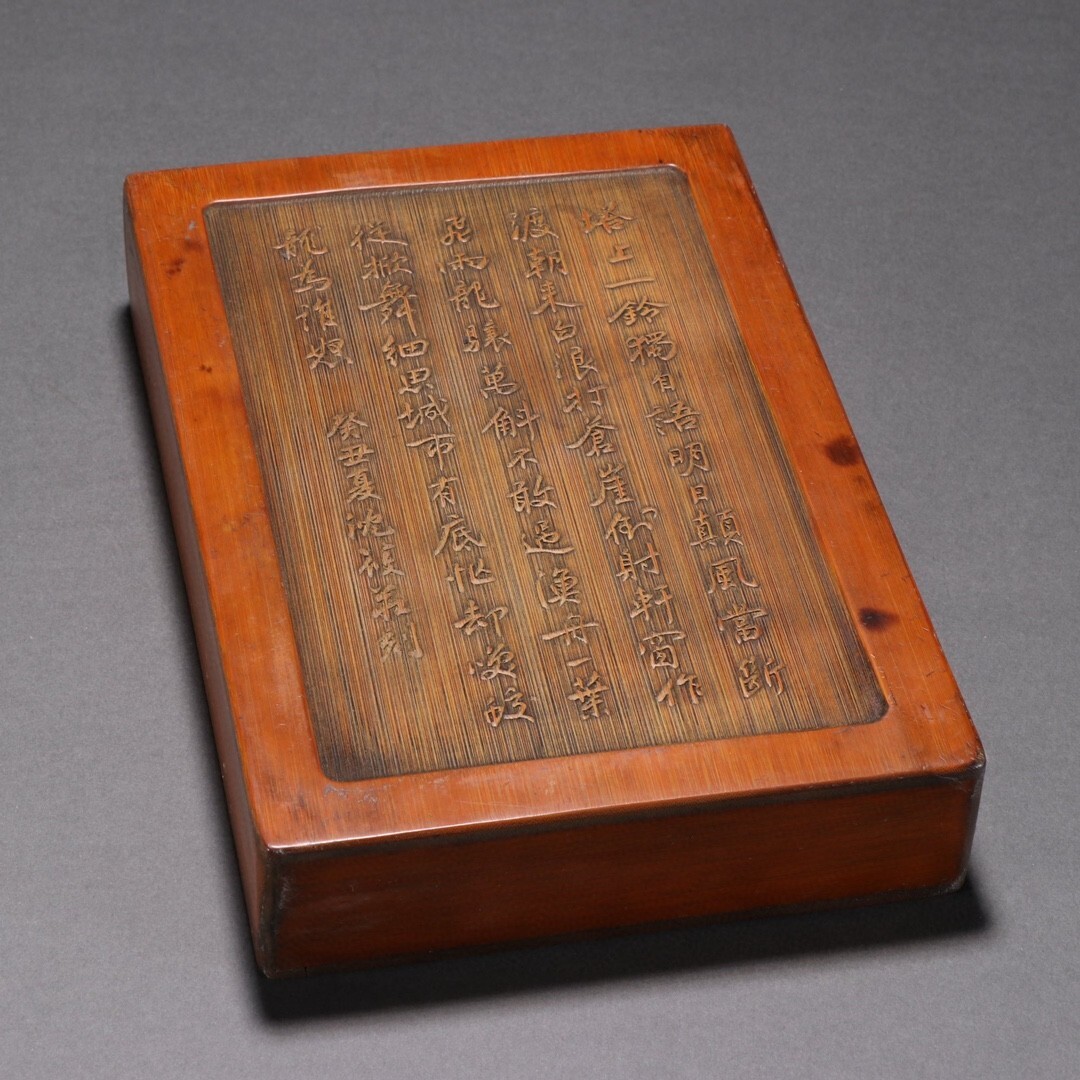 塔上一鈴獨自語明日顛風當斷
渡朝來白浪打倉崖倒射軒窗作
飛雨龍驤萬斛不敢過漁舟一葉
從掀舞細思城市有底忙却笑蛟
龍為誰怒 癸丑夏沈筱莊刻